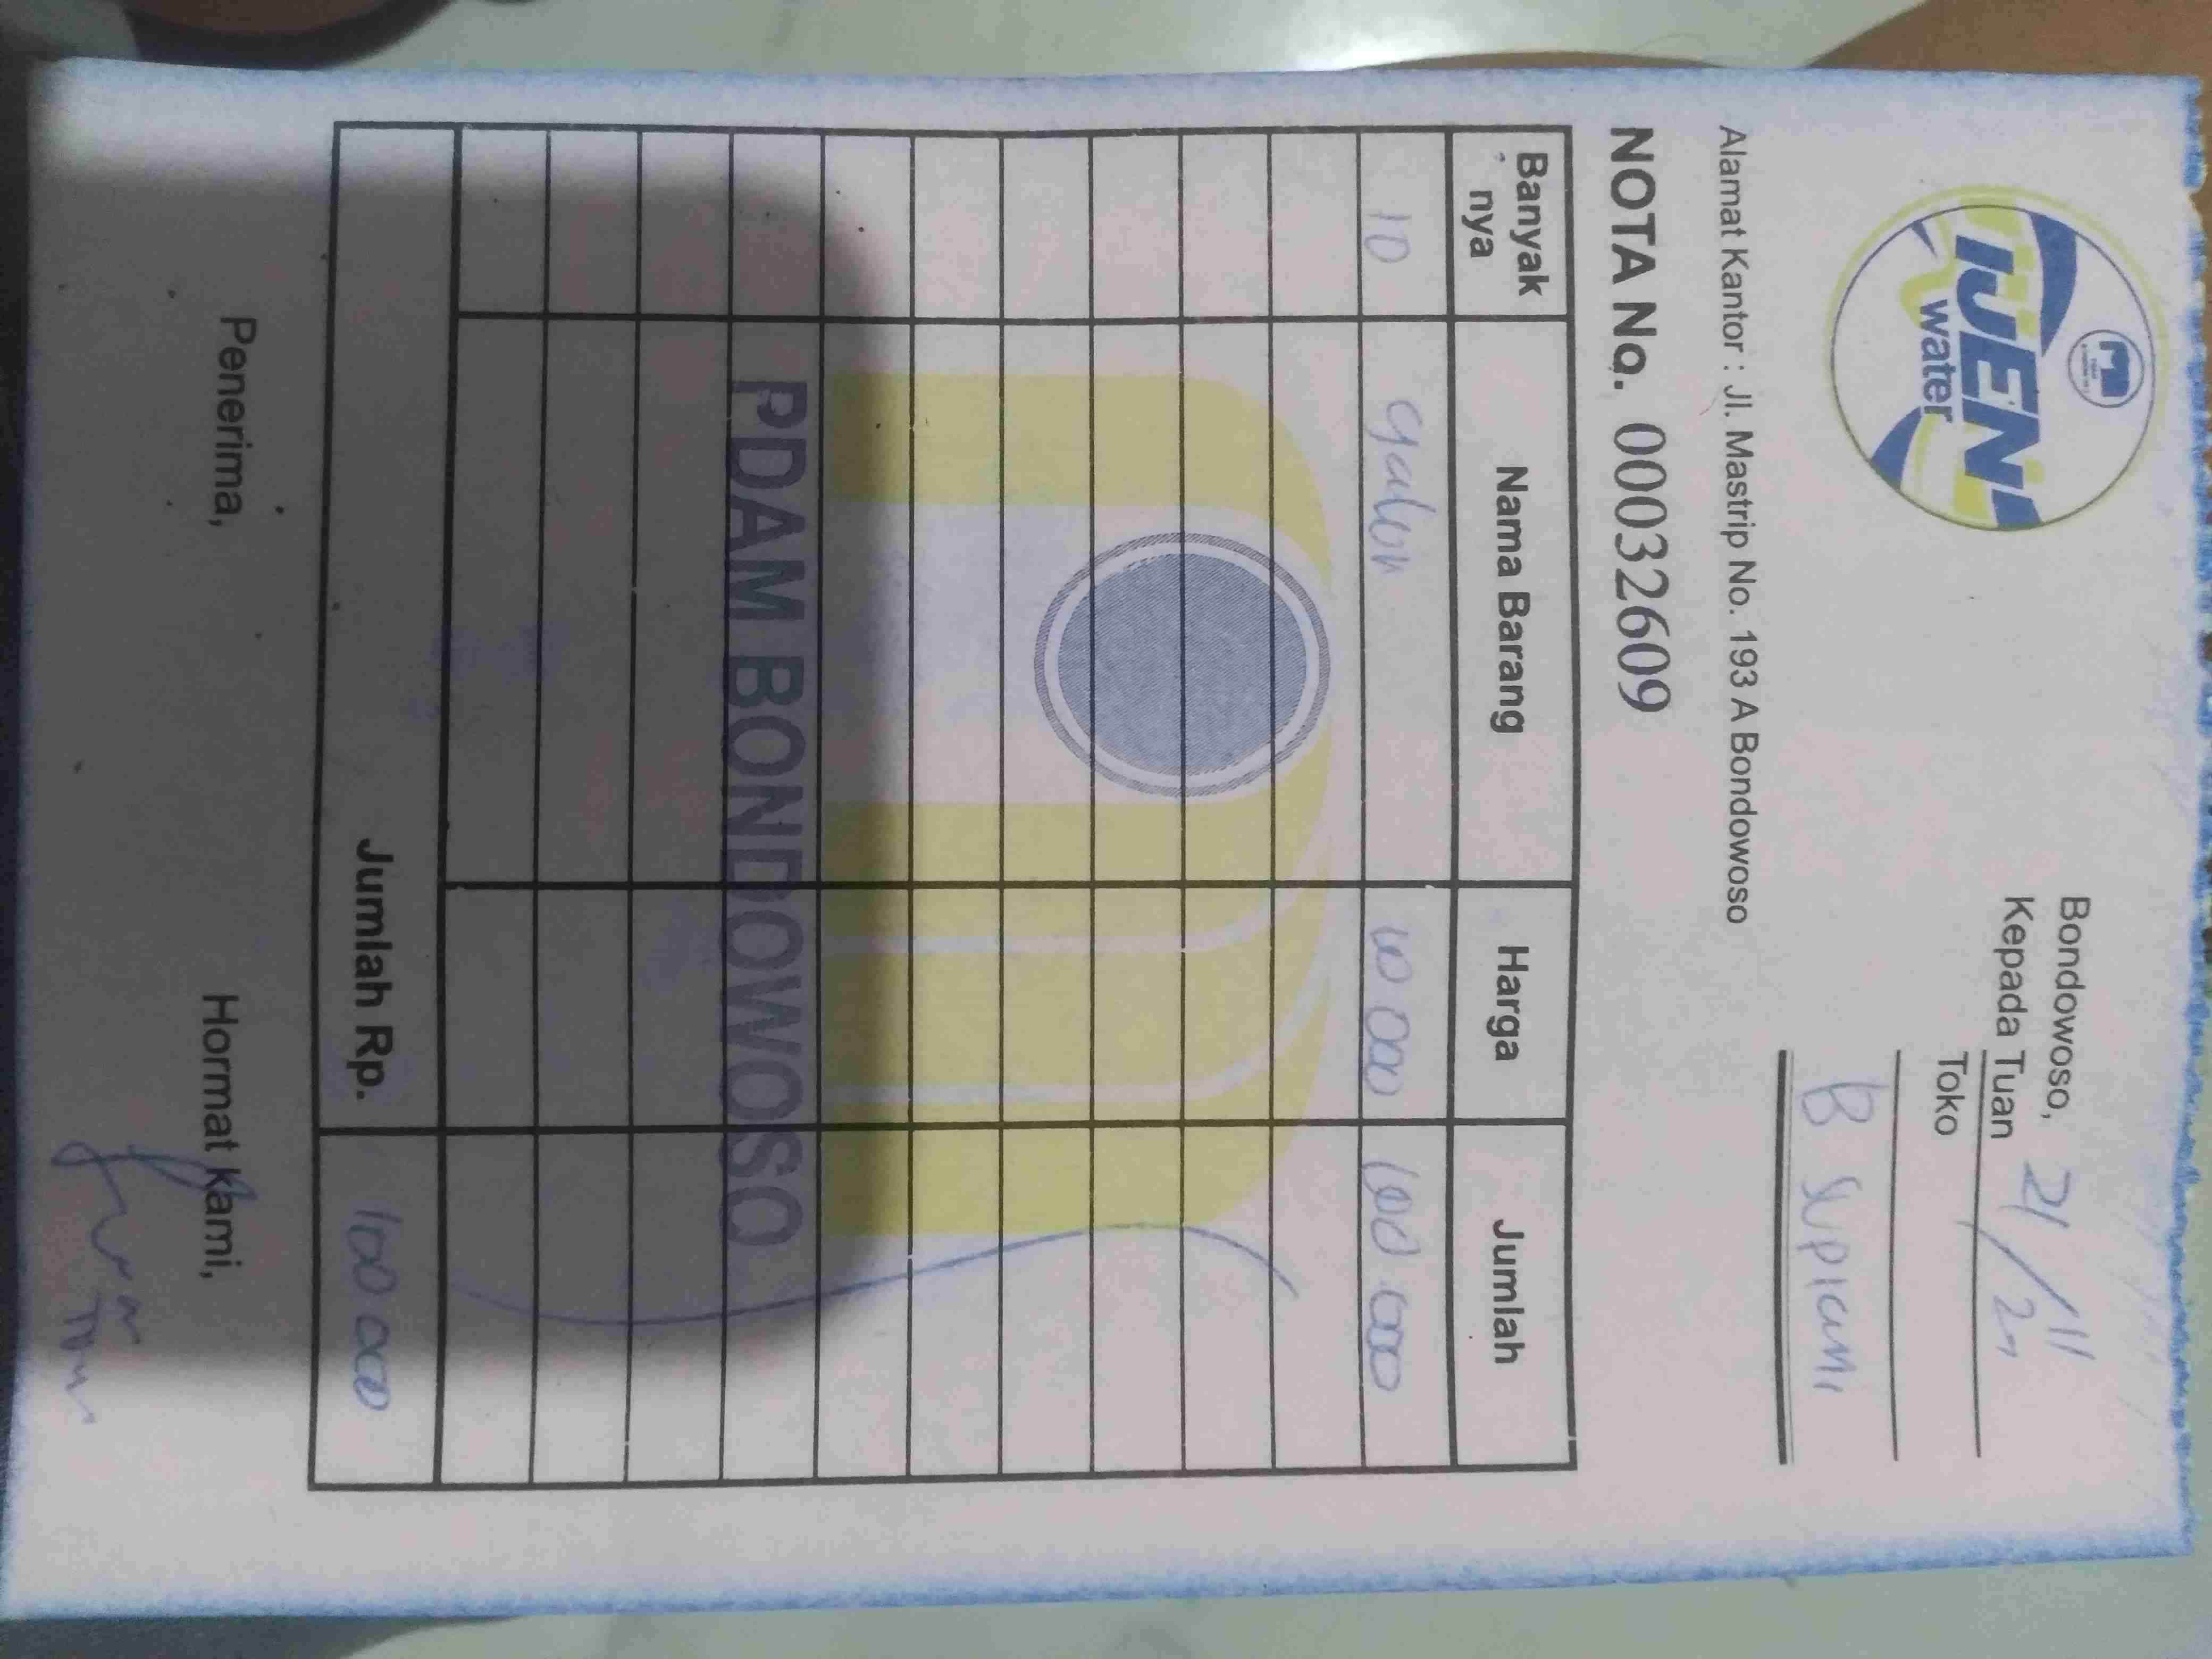 IJEN
water
Bondowoso, 21/11
Kepada Tuan
Toko
B Supiani
Alamat Kantor : Jl. Mastrip No. 193 A Bondowoso
NOTA No. 000032609
Banyak nya Nama Barang Harga Jumlah
10 galon 10 000 100.000
PDAM BONDOWOSO
Jumlah Rp. 100 000
Penerima, Hormat kami,